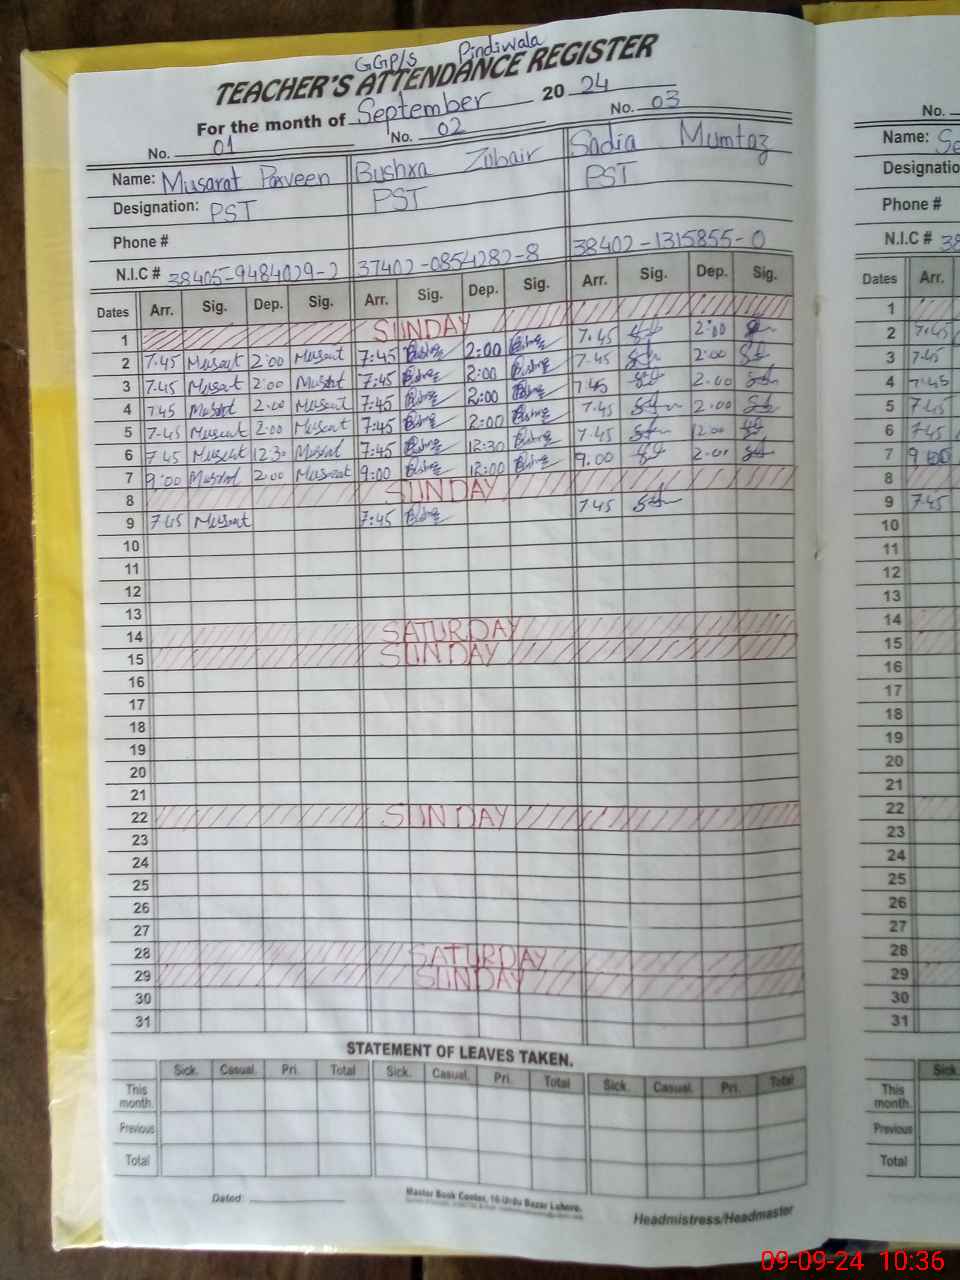 GGP/S Pindiwala
TEACHER'S ATTENDANCE REGISTER
For the month of September 20 24
No. 01 No. 02 No. 03
Name: Musarat Parveen Bushra Zubair Sadia Mumtaz
Designation: PST PST PST
Phone #
N.I.C # 38405-9484029-2 37402-0854282-8 38402-1315855-0
Dates Arr. Sig. Dep. Sig. Arr. Sig. Dep. Sig. Arr. Sig. Dep. Sig.
1 SUNDAY
2 7.45 Musarat 2:00 Musarat 7:45 Bushra 2:00 Bushra 7.45 2:00
3 7.45 Musarat 2:00 Musarat 7:45 Bushra 2:00 Bushra 7.45 2:00
4 7.45 Musarat 2:00 Musarat 7:45 Bushra 2:00 Bushra 7.45 2.00
5 7.45 Musarat 2:00 Musarat 7:45 Bushra 2:00 Bushra 7.45 2.00
6 7.45 Musarat 12.30 Musarat 7:45 Bushra 12:30 Bushra 7.45 12.00
7 9:00 Musarat 2:00 Musarat 9:00 Bushra 12:00 Bushra 9.00 2.00
8 SUNDAY
9 7.45 Musarat 7:45 Bushra 7.45
10
11
12
13
14 SATURDAY
15 SUNDAY
16
17
18
19
20
21
22 SUNDAY
23
24
25
26
27
28 SATURDAY
29 SUNDAY
30
31
STATEMENT OF LEAVES TAKEN.
Sick. Casual. Pri. Total Sick. Casual. Pri. Total Sick. Casual. Pri. Total
This month.
Previous
Total
Dated:
Master Book Center, 16-Urdu Bazar Lahore.
Headmistress/Headmaster
No.
Name: Se
Designatio
Phone #
N.I.C # 38
Dates Arr.
1
2 7.45
3 7.45
4 7.45
5 7.45
6 7.45
7 9
8
9 7.45
10
11
12
13
14
15
16
17
18
19
20
21
22
23
24
25
26
27
28
29
30
31
Sick.
This month.
Previous
Total
09-09-24 10:36